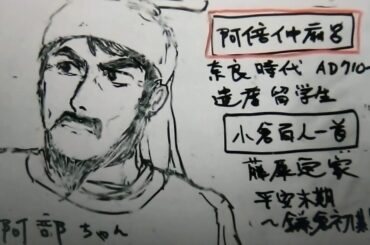 阿倍仲麻呂
奈良時代 AD710~
遣唐留学生
小倉百人一首
藤原定家
平安末期
~鎌倉初期
阿部ちゃん